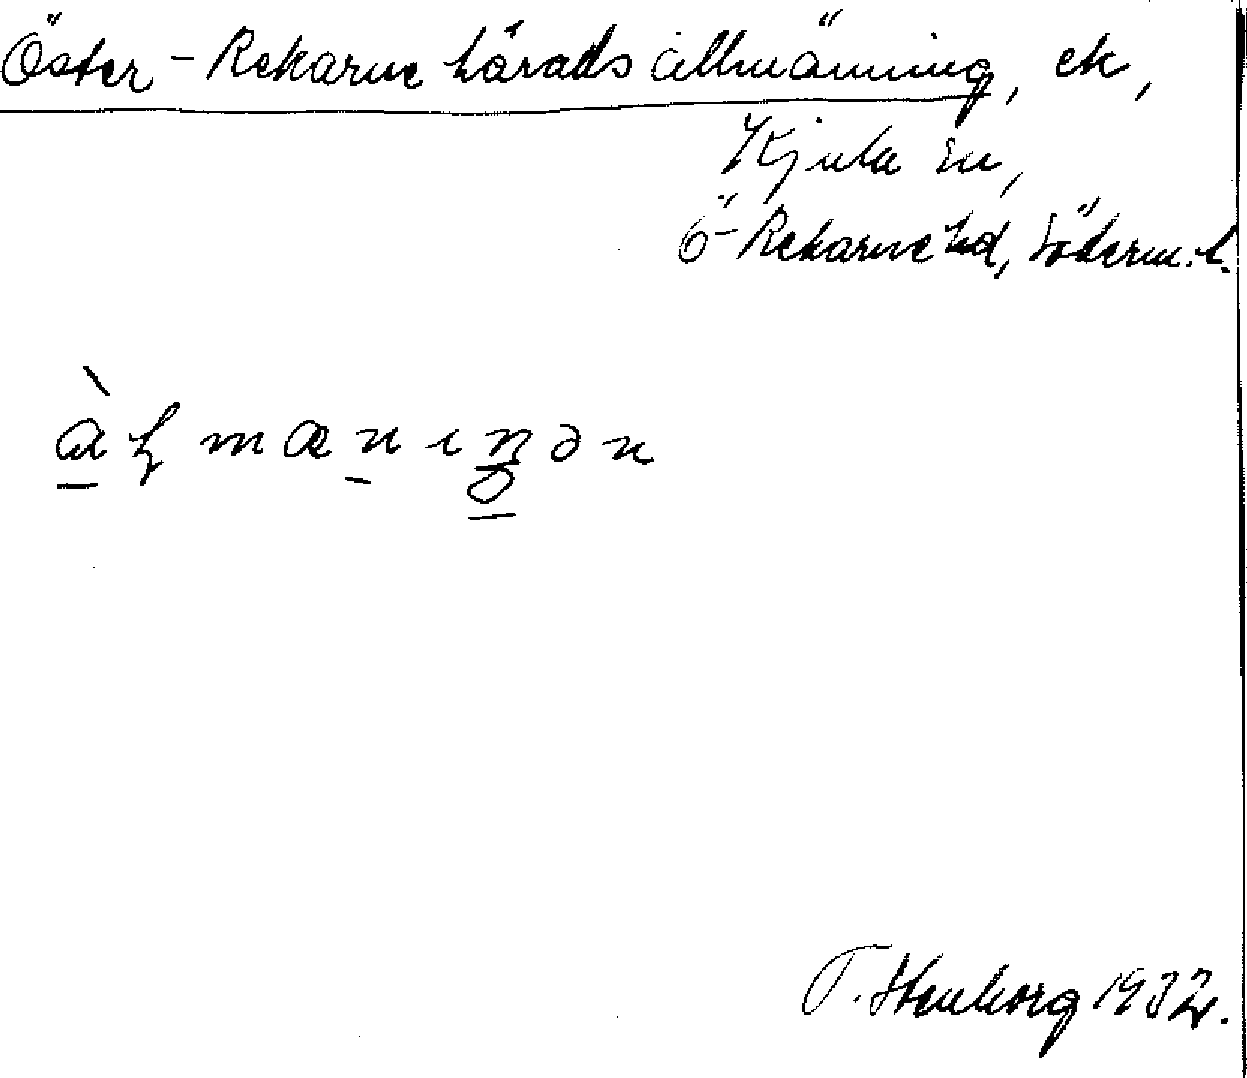 Öster-Rekarne härads allmänning, ek,
Kjula sn,
Ö-Rekarne hd, Söderm. l.
T. Stenborg 1932.